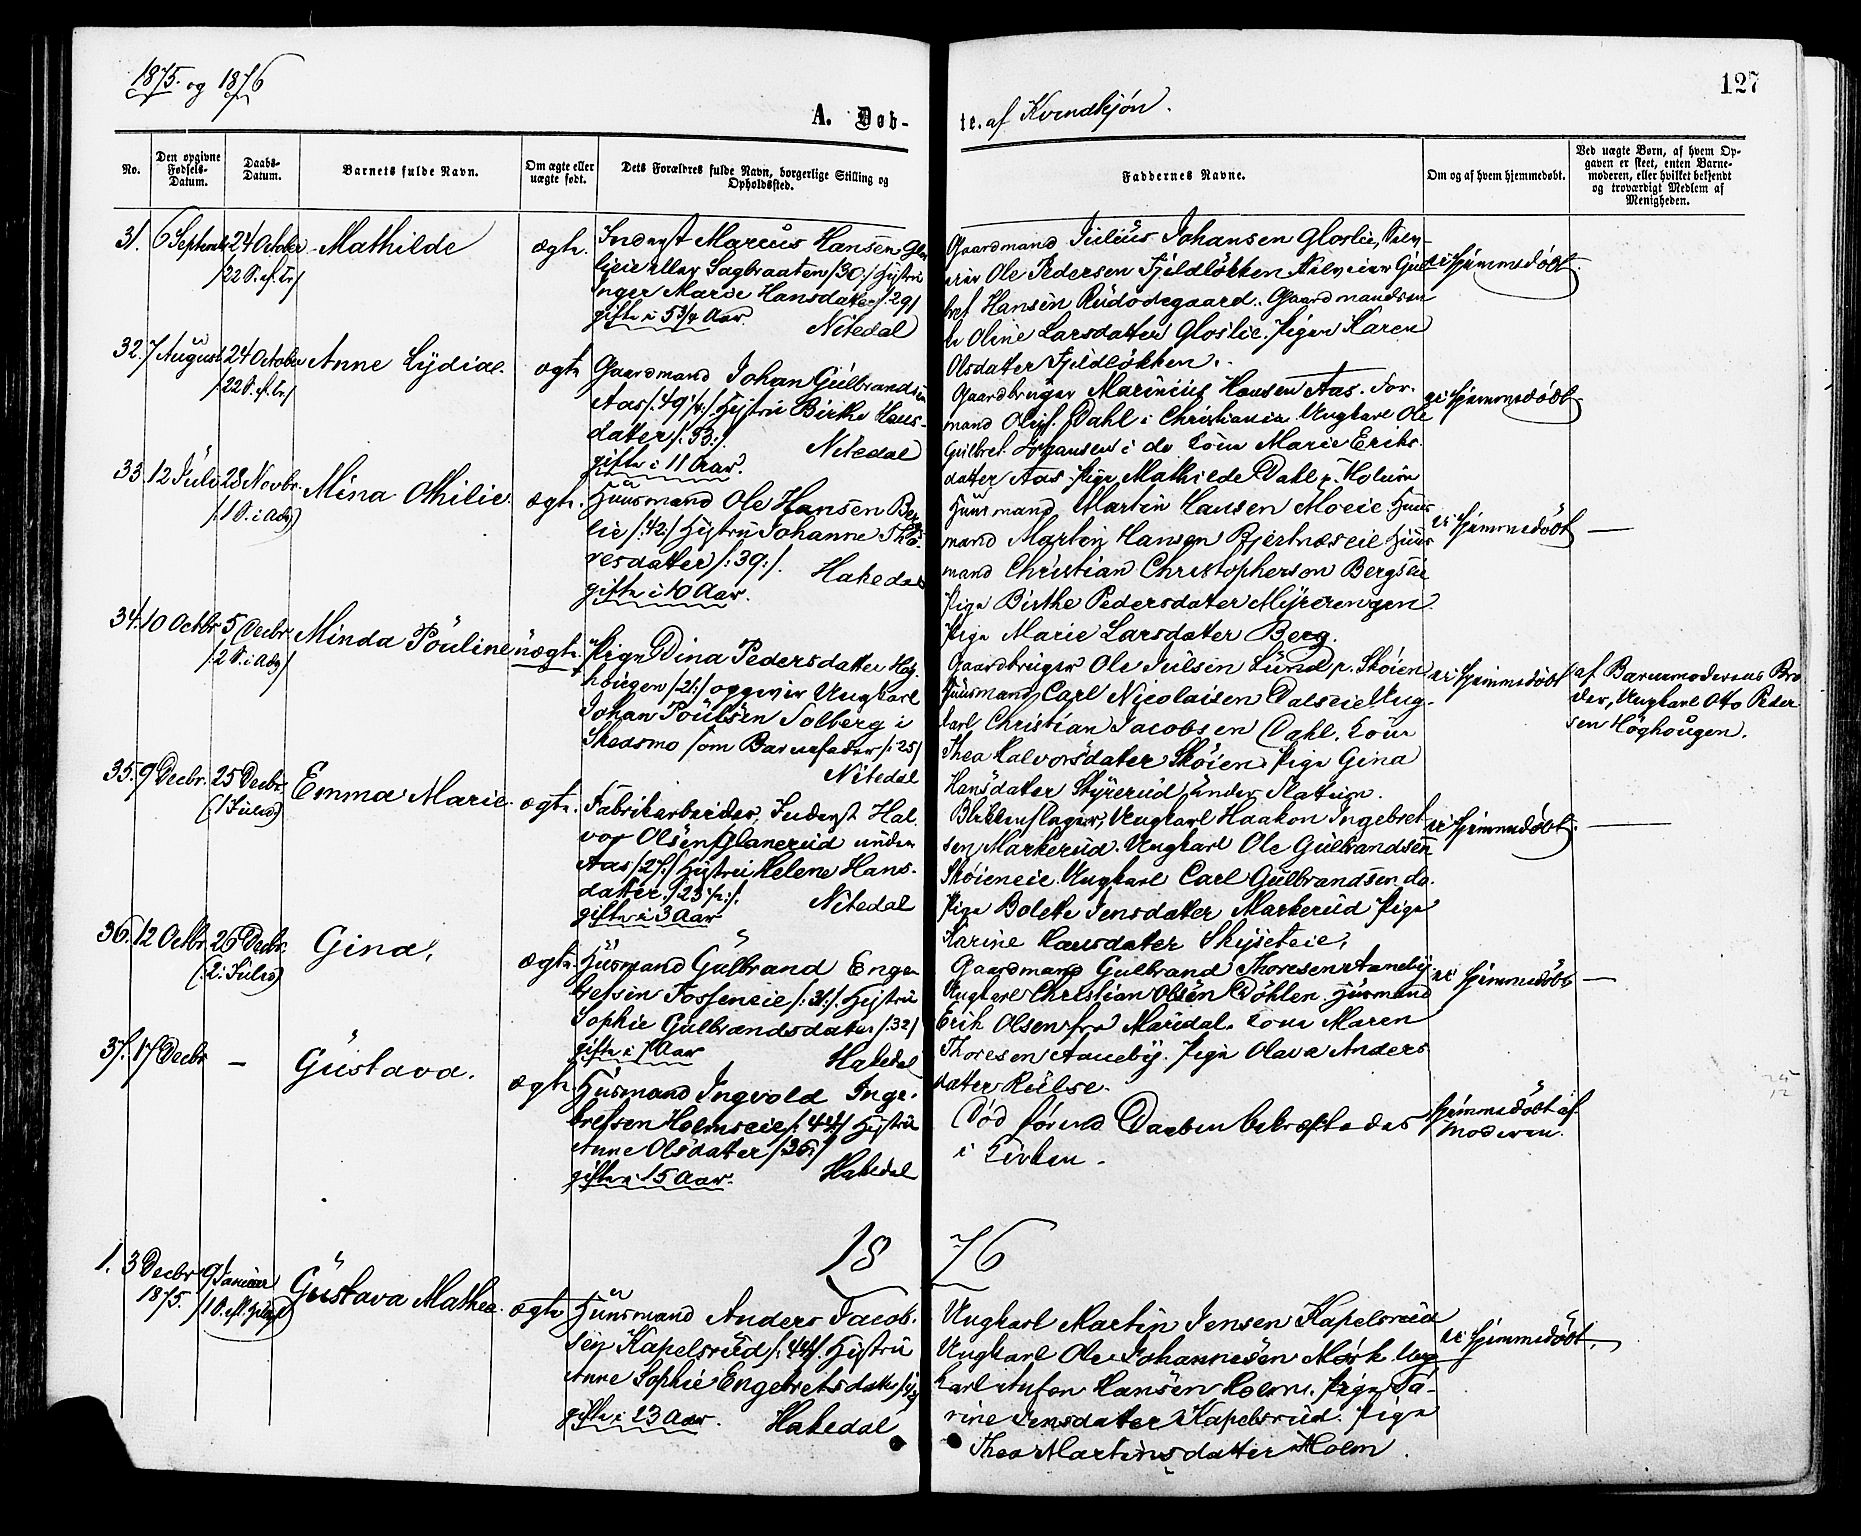 1875. og 1876
127
A. Døb-
te. af Kvindkjön.
No.
Den opgivne Fødsels-Datum.
Daabs-Datum.
Barnets fulde Navn.
Om ægte eller uægte født.
Dets Forældres fulde Navn, borgerlige Stilling og Opholdssted.
Faddernes Navne.
Om og af hvem hjemmedøbt.
Ved uægte Børn, af hvem Opgaven er skeet, enten Barnemoderen, eller hvilket bekjendt og troværdigt Medlem af Menigheden.
31. 6 Septembr 24 October Mathilde ægte.
/22 S. ef. Tr/
Inderst Marcus Hansen
eller Sagbraaten /30/ Hustru
Inger Marie Hansdatter /:29/
gifte i 5 3/4 Aar. Nitedal
Gaardmand Julius Johansen Gloslie,
Ole Pedersen Fjeldløkken
Hansen Rudodegaard. Gaardmandsen
Oline Larsdatter Gloslie. Pige Karen
Olsdatter Fjeldløkken.
ei hjemmedöbt.
32. 7 August 24 October Anne Lydia. ægte
/22 S. ef. Tr/
Gaardmand Johan Gulbrandsen
Aas /:49 1/4:/ Hustru Birthe Hans-
datter /:33:/.
gifte i 11 Aar. Nitedal
Gaardbruger Marinius Hansen Aas. For-
mand Dahl i Christiania Ungkarl Ole
Gulbr. Johansen i do Kone Marie Eriks-
datter Aas. Pige Mathilde Dahl p. Holm
ei hjemmedöbt
33. 12 Juli 28 Novbr. Mina Othilie. ægte.
/:1 S. i Adv/
Huusmand Ole Hansen Berg-
lie /:42:/ Hustru Johanne Tho-
resdatter /:39:/.
gifte i 10 Aar. Hakedal
Huusmand Martin Hansen Moeie. Huus-
mand Martin Hansen Bjertnæseie Huus-
mand Christian Christophersen Bergseie
Pige Birthe Pedersdatter Myrerengen
Pige Marie Larsdatter Berg.
ei hjemmedöbt —
34. 10 Octbr 5 Decbr. Minda Pouline uægte.
/:2 S. i Adv/
Pige Dina Pedersdatter Høg-
hougen /21/ opgiver Ungkarl
Johan Poulsen Solberg i
Skedsmo som Barnefader /:25/
Nitedal
Gaardbruger Ole Julsen Lund p. Skøien
Huusmand Carl Nicolaisen Dalseie Ung-
karl Christian Jacobsen Dahl. Kone
Thea Halvorsdatter Skøien. Pige Gina
Hansdatter Skyrerud under Slattum.
ei hjemmedöbt
af Barnemoderens Bro-
der, Ungkarl Otto Peder-
sen Høghougen.
35. 9 Decbr. 25 Decbr. Emma Marie. ægte.
(1 Juled)
Fabrikarbeider, Inderst Hal-
vor Olsen Glanerud under
Aas /27/ Hustru Helene Hans-
datter /23 1/2:/.
gifte i 3 Aar Nitedal
Blikkenslager, Ungkarl Haakon Ingebret-
sen Markerud. Ungkarl Ole Gulbrandsen
Skøieneie Ungkarl Carl Gulbrandsen do.
Pige Bolette Jensdatter Markerud Pige
Karine Hansdatter Skyseteie.
ei hjemmedöbt. —
36. 12 Octbr. 26 Decbr. Gina. ægte.
(2. Juled)
Husmand Gulbrand Enge-
bretsen Fosseneie /:31/. Hustru
Sophie Gulbrandsdatter /32/
gifte i 7 Aar Hakedal
Gaardmand Gulbrand Thoresen Aaneby
Ungkarl Christian Olsen Døhlen. Husmand
Erik Olsen fra Maridal. Kone Maren
Thoresen Aaneby. Pige Olava Anders-
datter Rulse.
ei hjemmedöbt —
37. 17 Decbr — Gustava. ægte.
Husmand Ingvold Inge-
bretsen Holmseie /:44/ Hustru
Anne Olsdatter /36/
gifte i 15 Aar. Hakedal
Död förend Daaben bekræftedes
i Kirken.
hjemmedöbt af
Moderen.
1876
1. 3 Decbr 1875. 9 Januar Gustava Mathea. ægte
Huusmand Anders Jacob-
sen Kapelsrud /:44/. Hustru
Anne Sophie Engebretsdatter
gifte i 23 Aar. Hakedal
Ungkarl Martin Jensen Kapelsrud
Ungkarl Ole Johannesen Mørk. Ung-
karl Anton Hansen Holm. Pige Ka-
rine Jensdatter Kapelsrud. Pige
Thea Martinsdatter Holm.
ei hjemmedöbt.